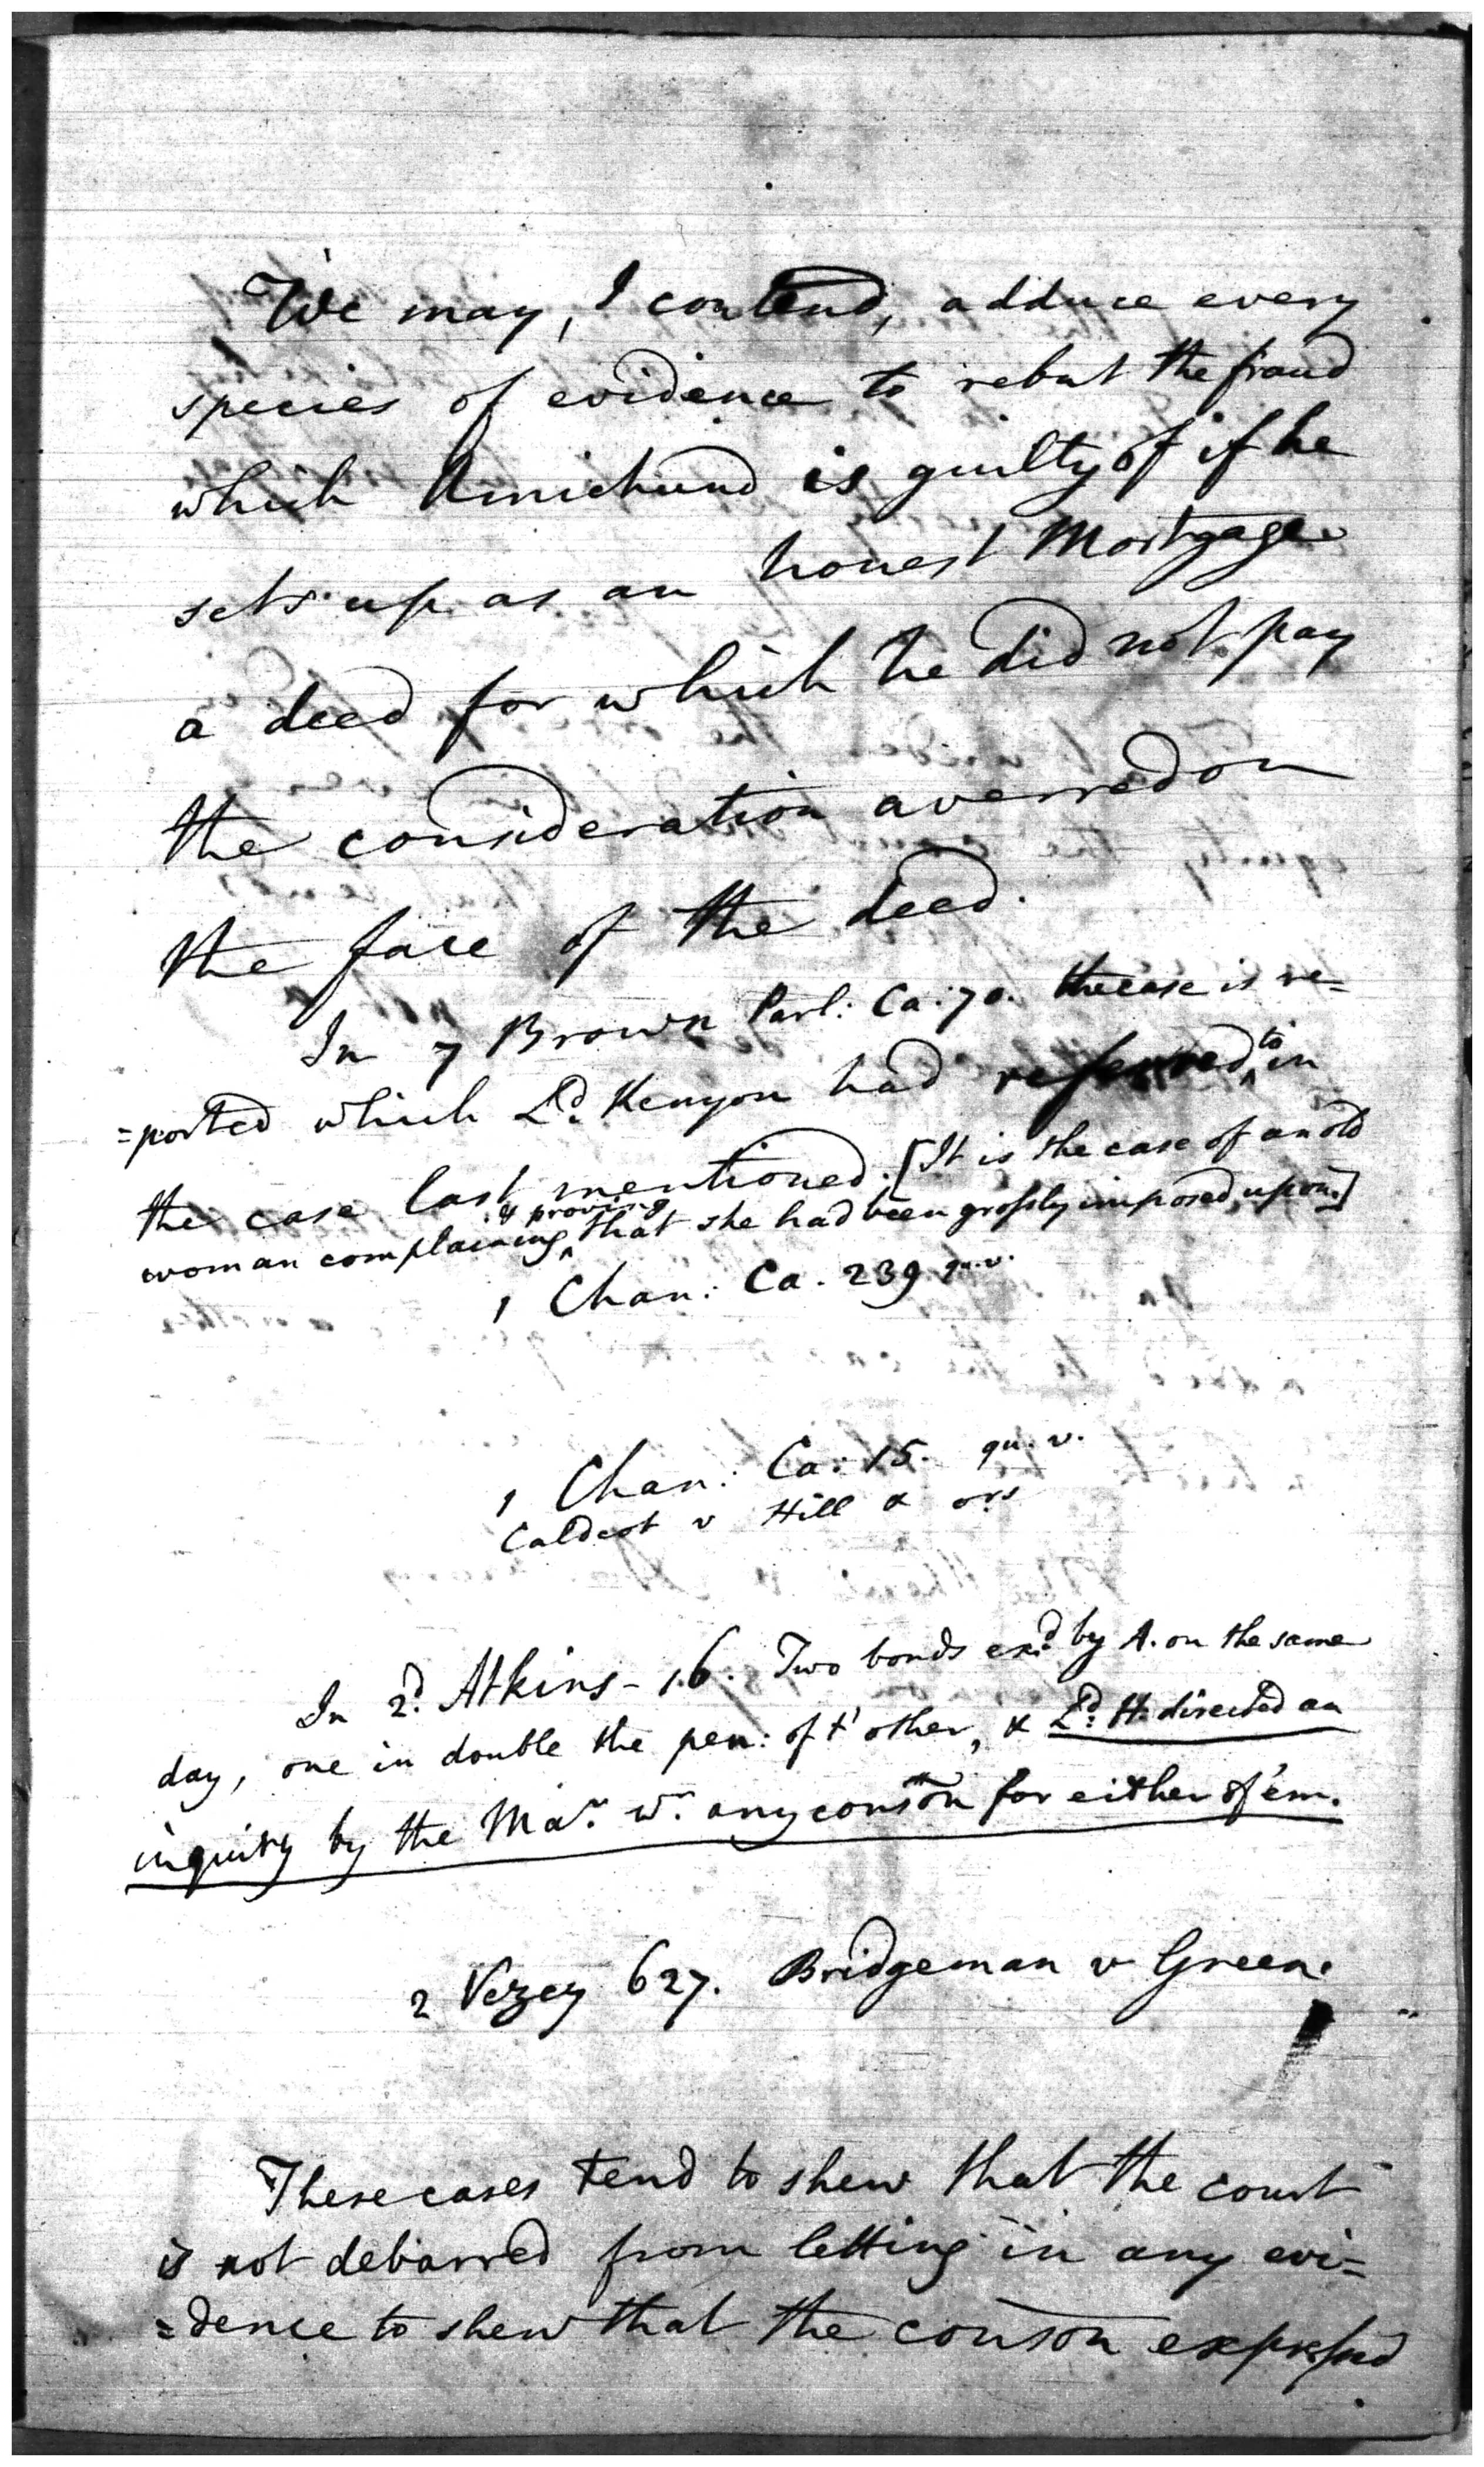 We may, I contend, adduce every
species of evidence to rebut the fraud
which Amichund is guilty of if he
sets up as an honest Mortgage
a deed for which he did not pay
the consideration averred on
the face of the deed.
In 7 Brown Parl: Ca: 70. the case is re=
=ported which Ld. Kenyon had referred to in
the case last mentioned. [It is the case of an old
woman complaining & proving that she had been grossly imposed upon.]
1 Chan: Ca. 239 qu. v.
1 Chan: Ca: 15. qu. v.
Caldcot v Hill & ors
In 2d. Atkins - 16. Two bonds exd. by A. on the same
day, one in double the pen: of t'other, & Ld. H. directed an
inquiry by the Mar. wr. any conson for either of 'em.
2 Vezey 627. Bridgeman v Green.
These cases tend to shew that the court
is not debarred from letting in any evi=
=dence to shew that the conson expressed